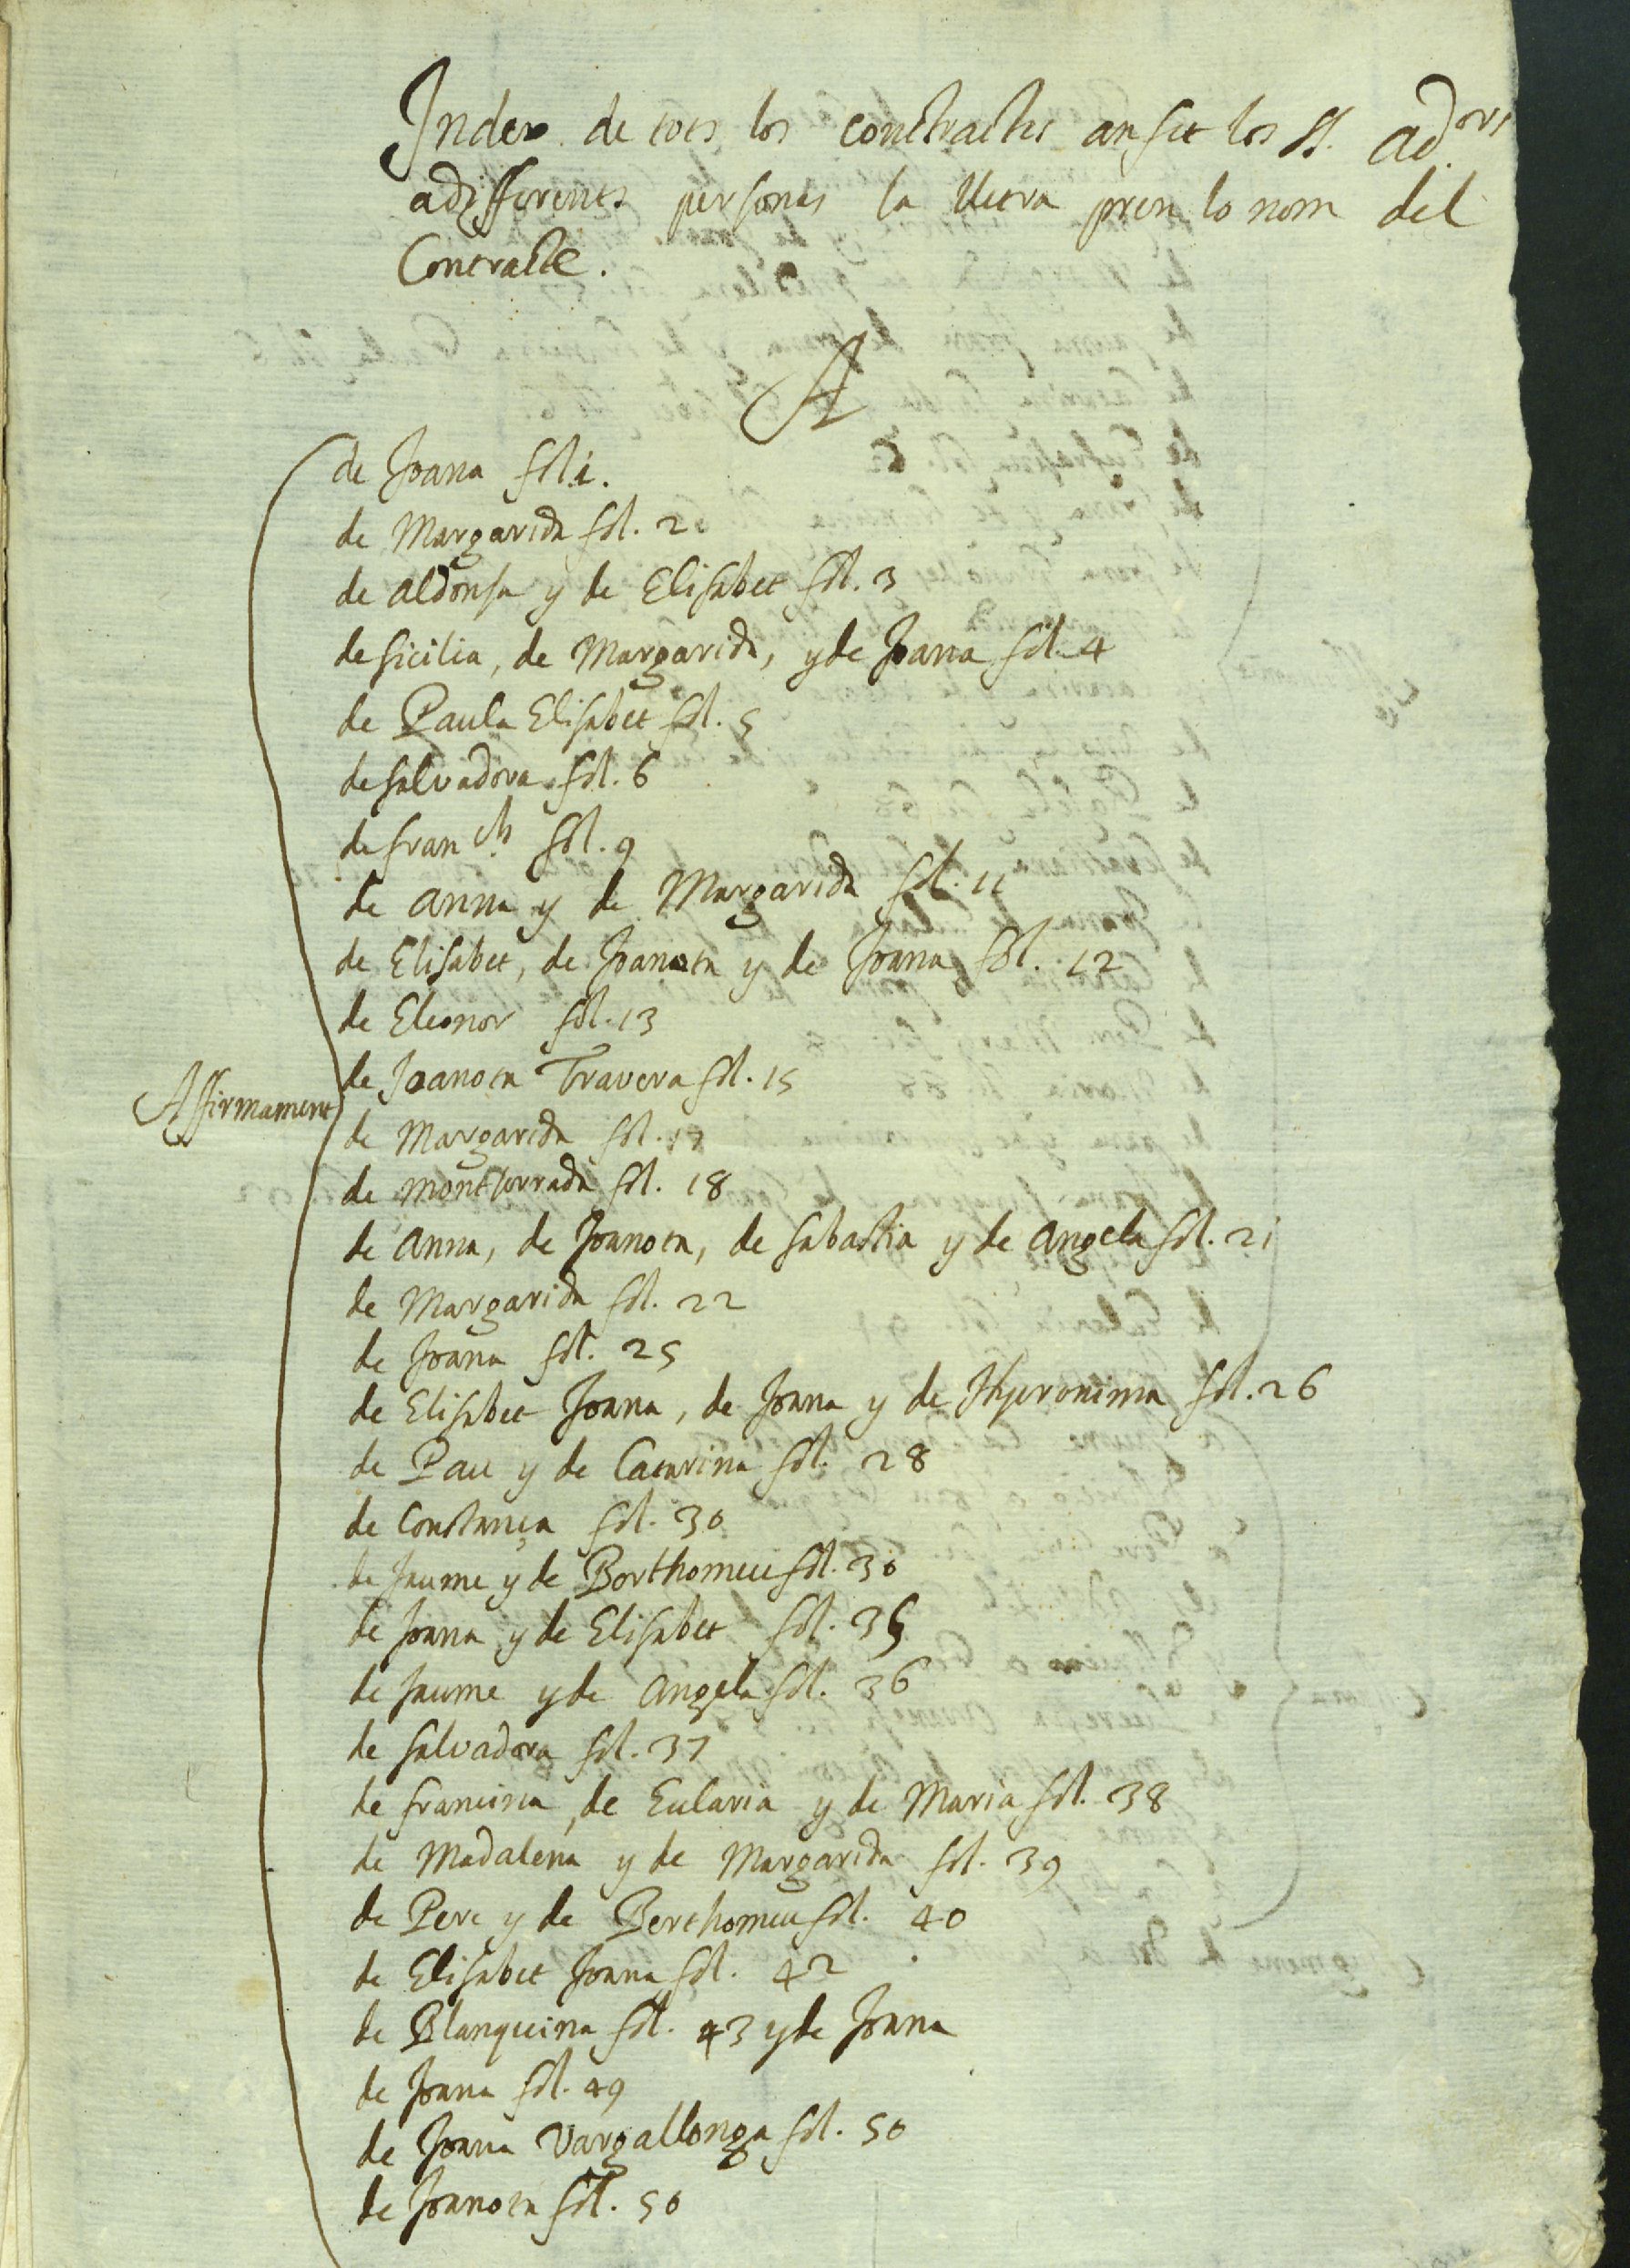 Index de tots los conctractes an fet los SS. Ad.ors
a differents personas la lletra pren lo nom del
Contracte.
A
de Joana fol. 1.
de Margarida fol. 2
de Aldonsa y de Elisabet fol. 3
de Sicilia, de Margarida, y de Joana fol. 4
de Paula Elisabet fol. 5
de Salvadora fol. 6
de Fran.ch fol. 9
de Anna y de Margarida fol. 11
de Elisabet, de Joanota y de Joana fol. 12
de Eleonor fol. 13
de Joanota Travera fol. 15
Affirmament
de Margarida fol. 17
de Montserrada fol. 18
de Anna, de Joanota, de Sabastia y de Angela fol. 21
de Margarida fol. 22
de Joana fol. 25
de Elisabet Joana, de Joana y de Hyeronima fol. 26
de Pau y de Catarina fol. 28
de Constança fol. 30
de Jaume y de Borthomeu fol. 30
de Joana y de Elisabet fol. 35
de Jaume y de Angela fol. 36
de Salvadora fol. 37
de Francina, de Eularia y de Maria fol. 38
de Madalena y de Margarida fol. 39
de Pere y de Berthomeu fol. 40
de Elisabet Joana fol. 42
de Blanquina fol. 43 y de Joana
de Joana fol. 49
de Joana Vargallonga fol. 50
de Joanota fol. 50